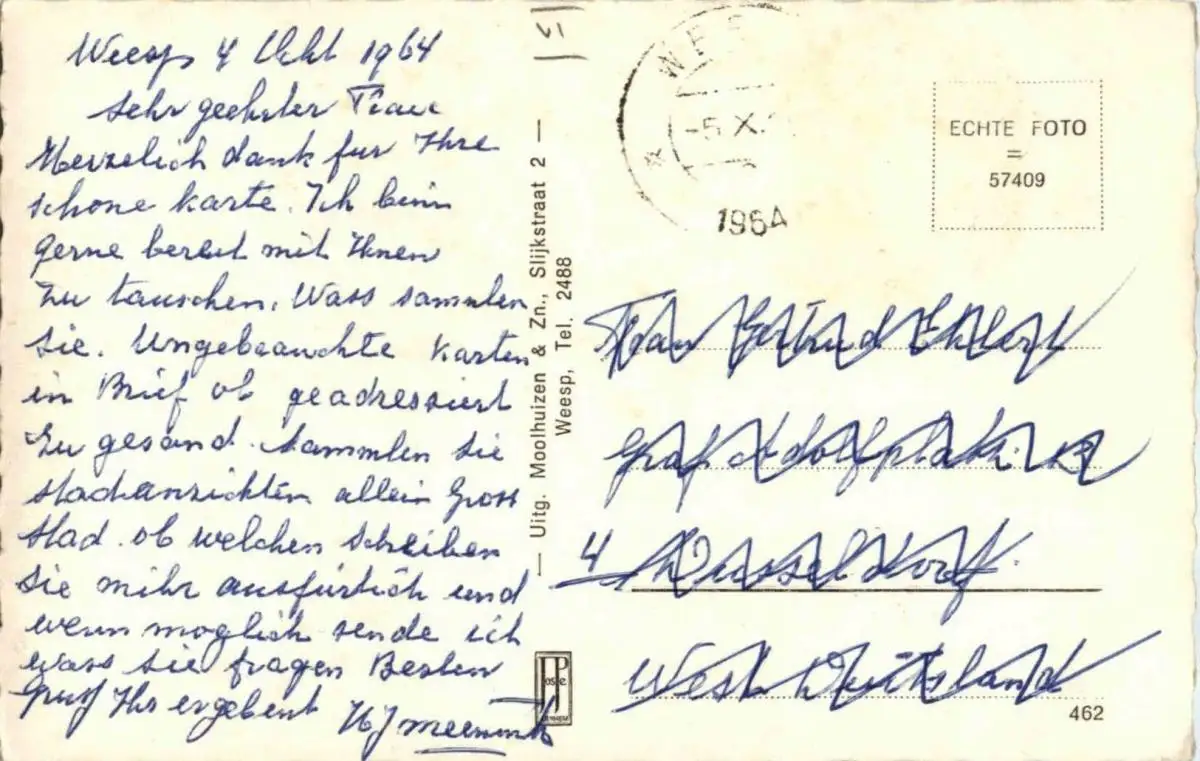 Weesp 4 Okt 1964
Sehr geehrter Frau
Herzelich dank fur Ihre
schone karte. Ich binn
gerne bereit mit Ihnen
zu tauschen. Wass sammlen
Sie. Ungebrauchte Karten
in Brief ob geadressiert
zu gesand. Sammlen sie
stadanzichten allein Gross
stad. ob welchen schreiben
Sie mihr ausfürlich und
wenn moglich sende ich
wass sie fragen Besten
Gruss Ihr ergebent HJ
— Uitg. Moolhuizen & Zn., Slijkstraat 2 —
Weesp, Tel. 2488
WEES
-5 X.
1964
ECHTE FOTO
=
57409
Frau Gertrud Ehlert
Graf Adolfplatz
4 Dusseldorf
West Duitsland
462